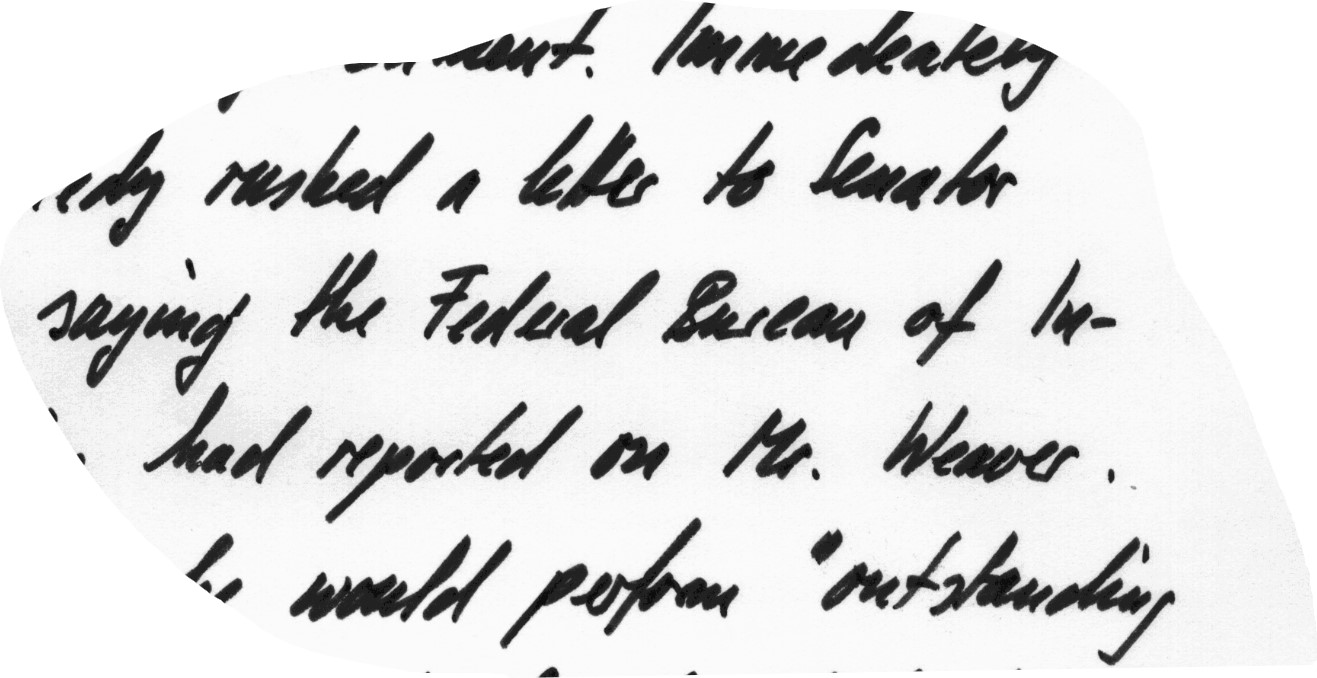 Immediately
rushed a letter to Senator
saying the Federal Bureau of In-
had reported on Mr. Weaver.
he would perform "outstanding